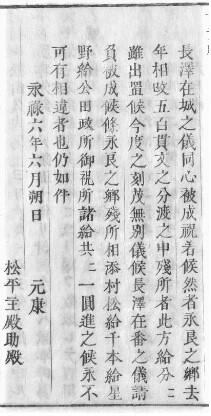 長澤在城之儀同心被成祝着候然者永良之鄕去
年相改五百貫文之分渡之申殘所者此方給分ニ
雖出置候今度之刻茂無別儀候長澤在番之儀請
負被成候條永良之鄕殘所相添村松給千本給星
野給公田政所御視所諸給共ニ一圓進之候永不
可有相違者也仍如件
永祿六年六月朔日
元康
松平主殿助殿